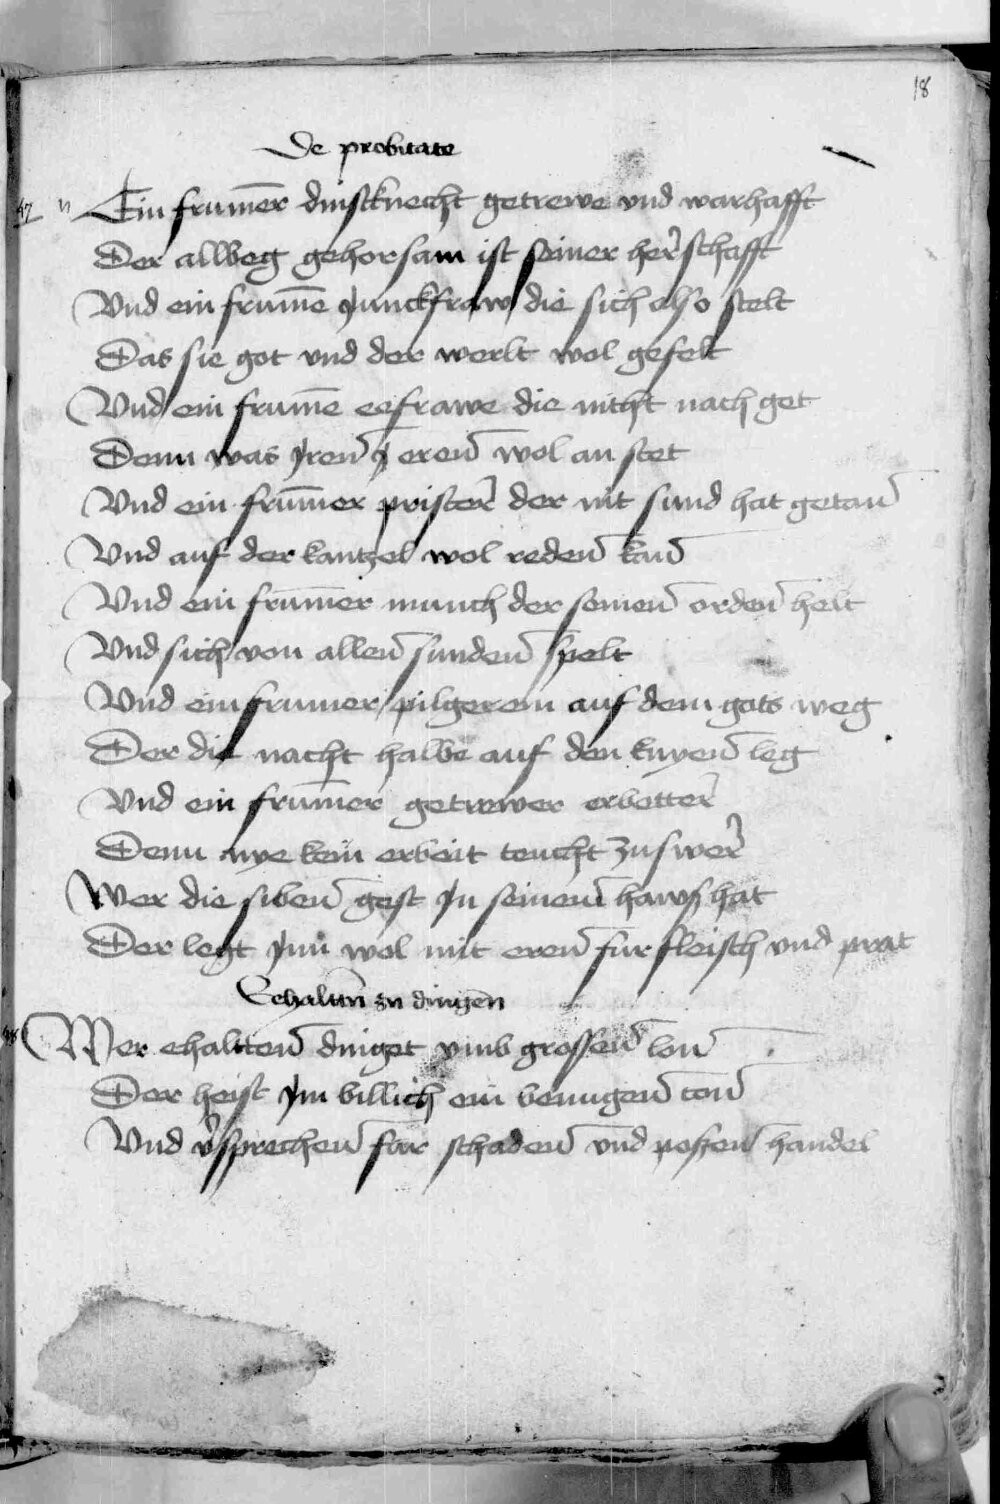 18
De probitate
47 Ein frum̄er dinstknecht getrewe vnd warhafft
Der allweg gehorsam ist seiner herschafft
Vnd ein frum̄e Junckfraw die sich also stelt
Das sie got vnd der werlt wol gefelt
Vnd ein frum̄e eefrawe die nicht nach get
Denn was Jren eren wol an stet
Vnd ein frum̄er prister der nit sund hat getan
Vnd auf der kantzel wol reden kan
Vnd ein frum̄er munch der seinen orden helt
Vnd sich von allen sunden spelt
Vnd ein frumer pilgerem auf dem gots weg
Der die nacht halbe auf den knyen leg
Vnd ein frum̄er getrewer erbetter
Denn nye kein erbeit teucht zu swer
Wer die siben gest Jn seinem haws hat
Der legt Jnn wol mit eren fur fleisch vnd prat
Ehalttn̄ zu dingen̄
48 Wer ehaltten dinget vmb grossen lon
Der heist Jm billich ein benugen ton
Vnd v̉sprechen far schaden vnd poszen handel